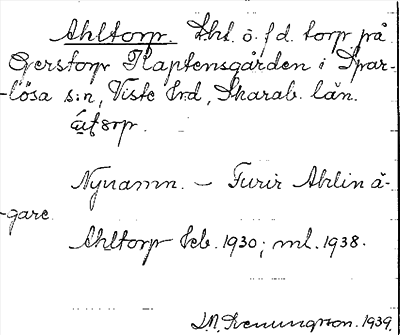 Ahltorp. Lht. o. f.d. torp på
Gerstorp Kaptensgården i Spar-
-lösa s:n, Viste hrd, Skarab. län.
Nynamn. – Furir Ahlin ä-
-gare.
Ahltorp Feb. 1930; ml. 1938.
1939.